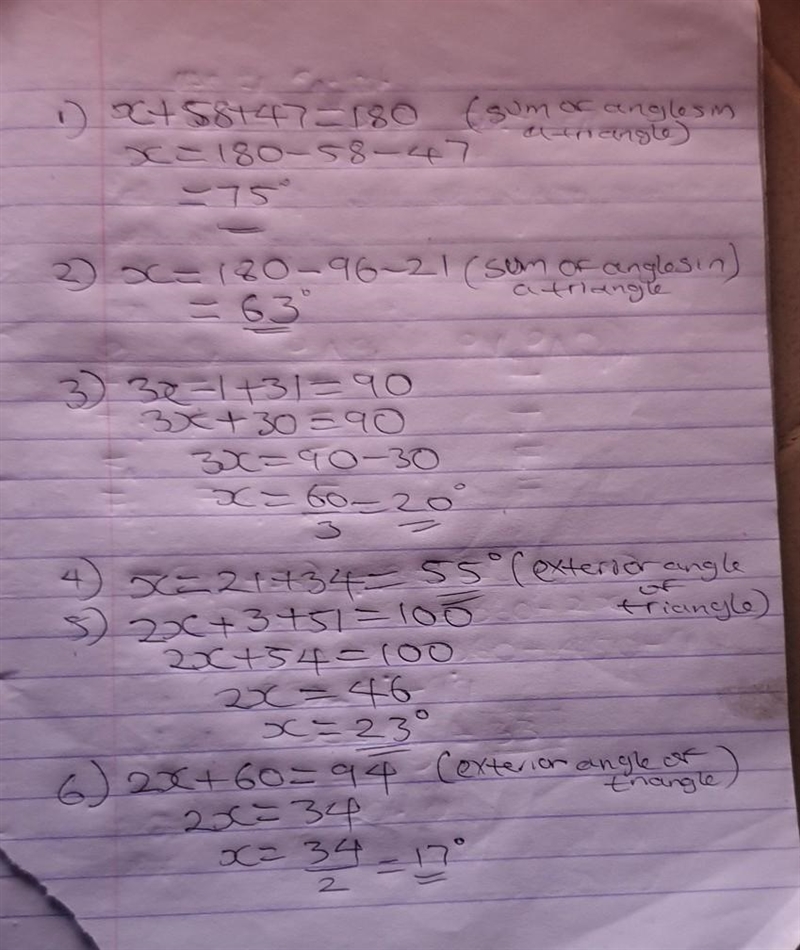 1) x+58+47=180 (sum of angles in
a triangle)
x=180-58-47
=75°
2) x=180-96-21 (sum of angles in)
a triangle
=63°
3) 3x-1+31=90
3x+30=90
3x=90-30
x=60/3=20°
4) x=21+34=55° (exterior angle
of
triangle)
5) 2x+3+51=100
2x+54=100
2x=46
x=23°
6) 2x+60=94 (exterior angle of
triangle)
2x=34
x=34/2=17°